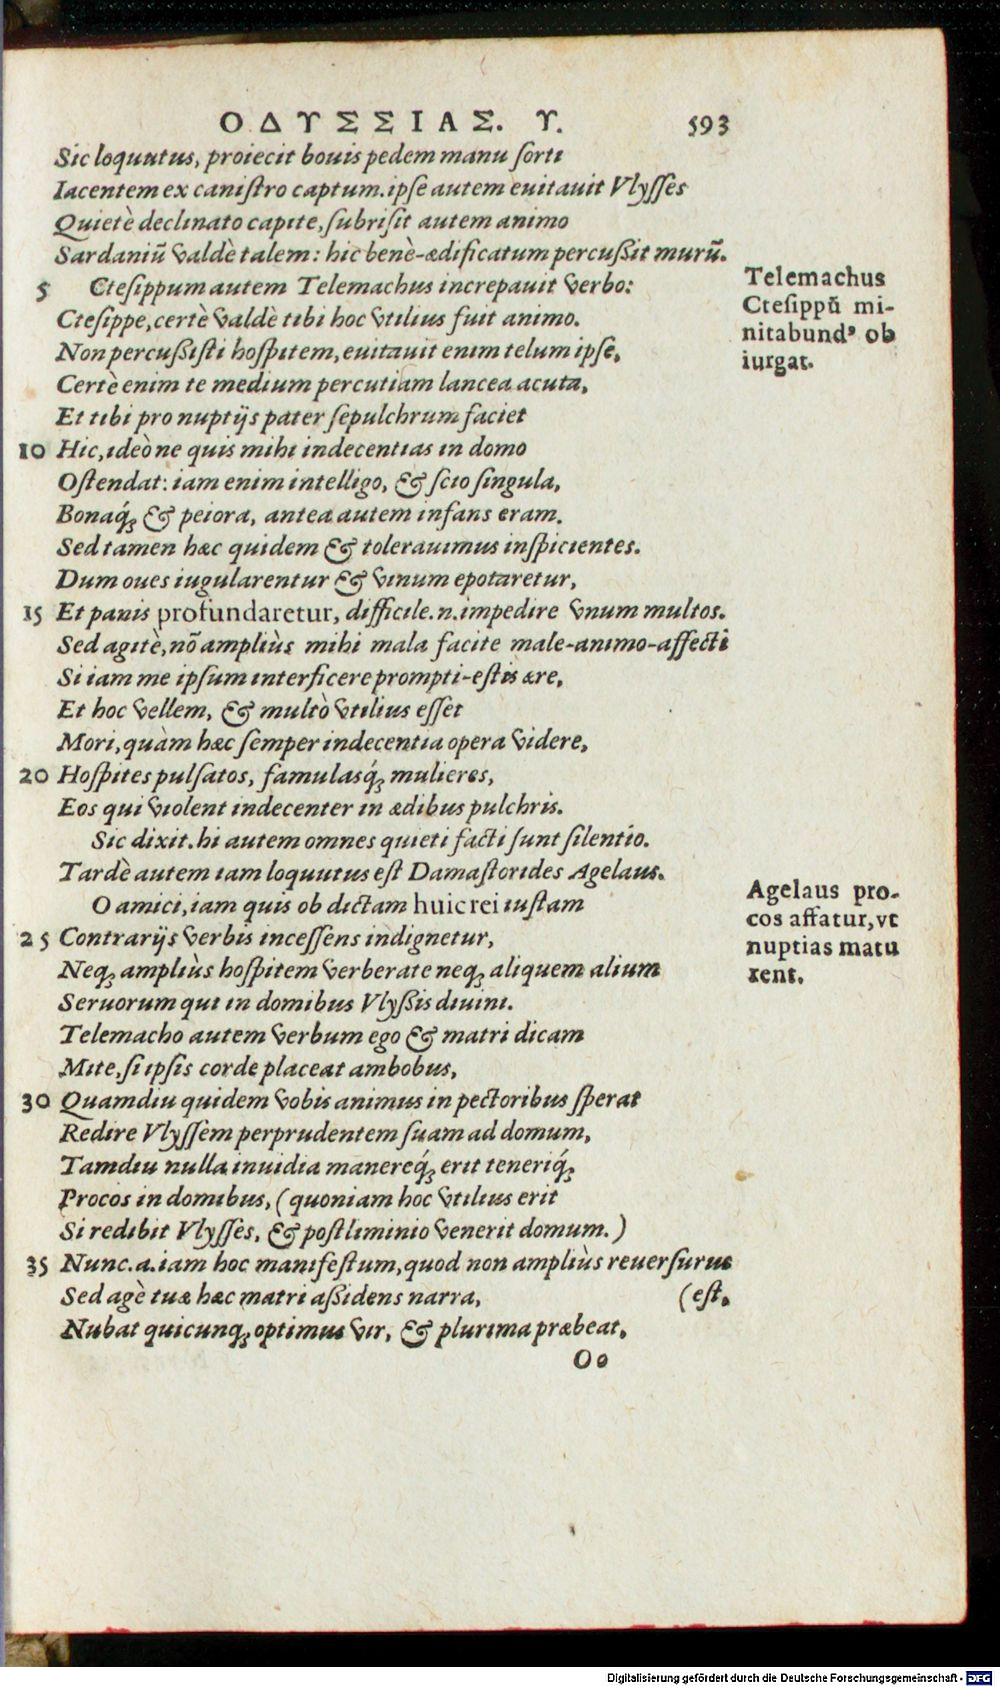 ΟΔΥΣΣΙΑΣ. Υ. 593
Sic loquutus, proiecit bouis pedem manu forti
Iacentem ex canistro captum. ipse autem euitauit Vlysses
Quietè declinato capite, subrisit autem animo
Sardaniū valdè talem: hic benè-ædificatum percußit murū.
5 Ctesippum autem Telemachus increpauit verbo:
Ctesippe, certè valdè tibi hoc vtilius fuit animo.
Non percußisti hospitem, euitauit enim telum ipse,
Certè enim te medium percutiam lancea acuta,
Et tibi pro nuptijs pater sepulchrum faciet
10 Hic, ideò ne quis mihi indecentias in domo
Ostendat: iam enim intelligo, & scio singula,
Bonaq́; & peiora, antea autem infans eram.
Sed tamen hæc quidem & tolerauimus inspicientes.
Dum oues iugularentur & vinum epotaretur,
15 Et panis profundaretur, difficile.n.impedire vnum multos.
Sed agitè, nō ampliùs mihi mala facite male-animo-affecti
Si iam me ipsum interficere prompti-estis ære,
Et hoc vellem, & multò vtilius esset
Mori, quàm hæc semper indecentia opera videre,
20 Hospites pulsatos, famulasq́; mulieres,
Eos qui violent indecenter in ædibus pulchris.
Sic dixit. hi autem omnes quieti facti sunt silentio.
Tardè autem iam loquutus est Damastorides Agelaus.
O amici, iam quis ob dictam huic rei iustam
25 Contrarijs verbis incessens indignetur,
Neq; ampliùs hospitem verberate neq; aliquem alium
Seruorum qui in domibus Vlyßis diuini.
Telemacho autem verbum ego & matri dicam
Mite, si ipsis corde placeat ambobus,
30 Quamdiu quidem vobis animus in pectoribus sperat
Redire Vlyssèm perprudentem suam ad domum,
Tamdiu nulla inuidia manereq́; erit teneriq́;
Procos in domibus, (quoniam hoc vtilius erit
Si redibit Vlysses, & postliminio venerit domum.)
35 Nunc.a.iam hoc manifestum, quod non ampliùs reuersurus
Sed agè tuæ hæc matri aßidens narra, (est,
Nubat quicunq; optimus vir, & plurima præbeat,
Oo
Telemachus
Ctesippū mi-
nitabundꝰ ob
iurgat.
Agelaus pro-
cos affatur, vt
nuptias matu
rent.
Digitalisierung gefördert durch die Deutsche Forschungsgemeinschaft - DFG